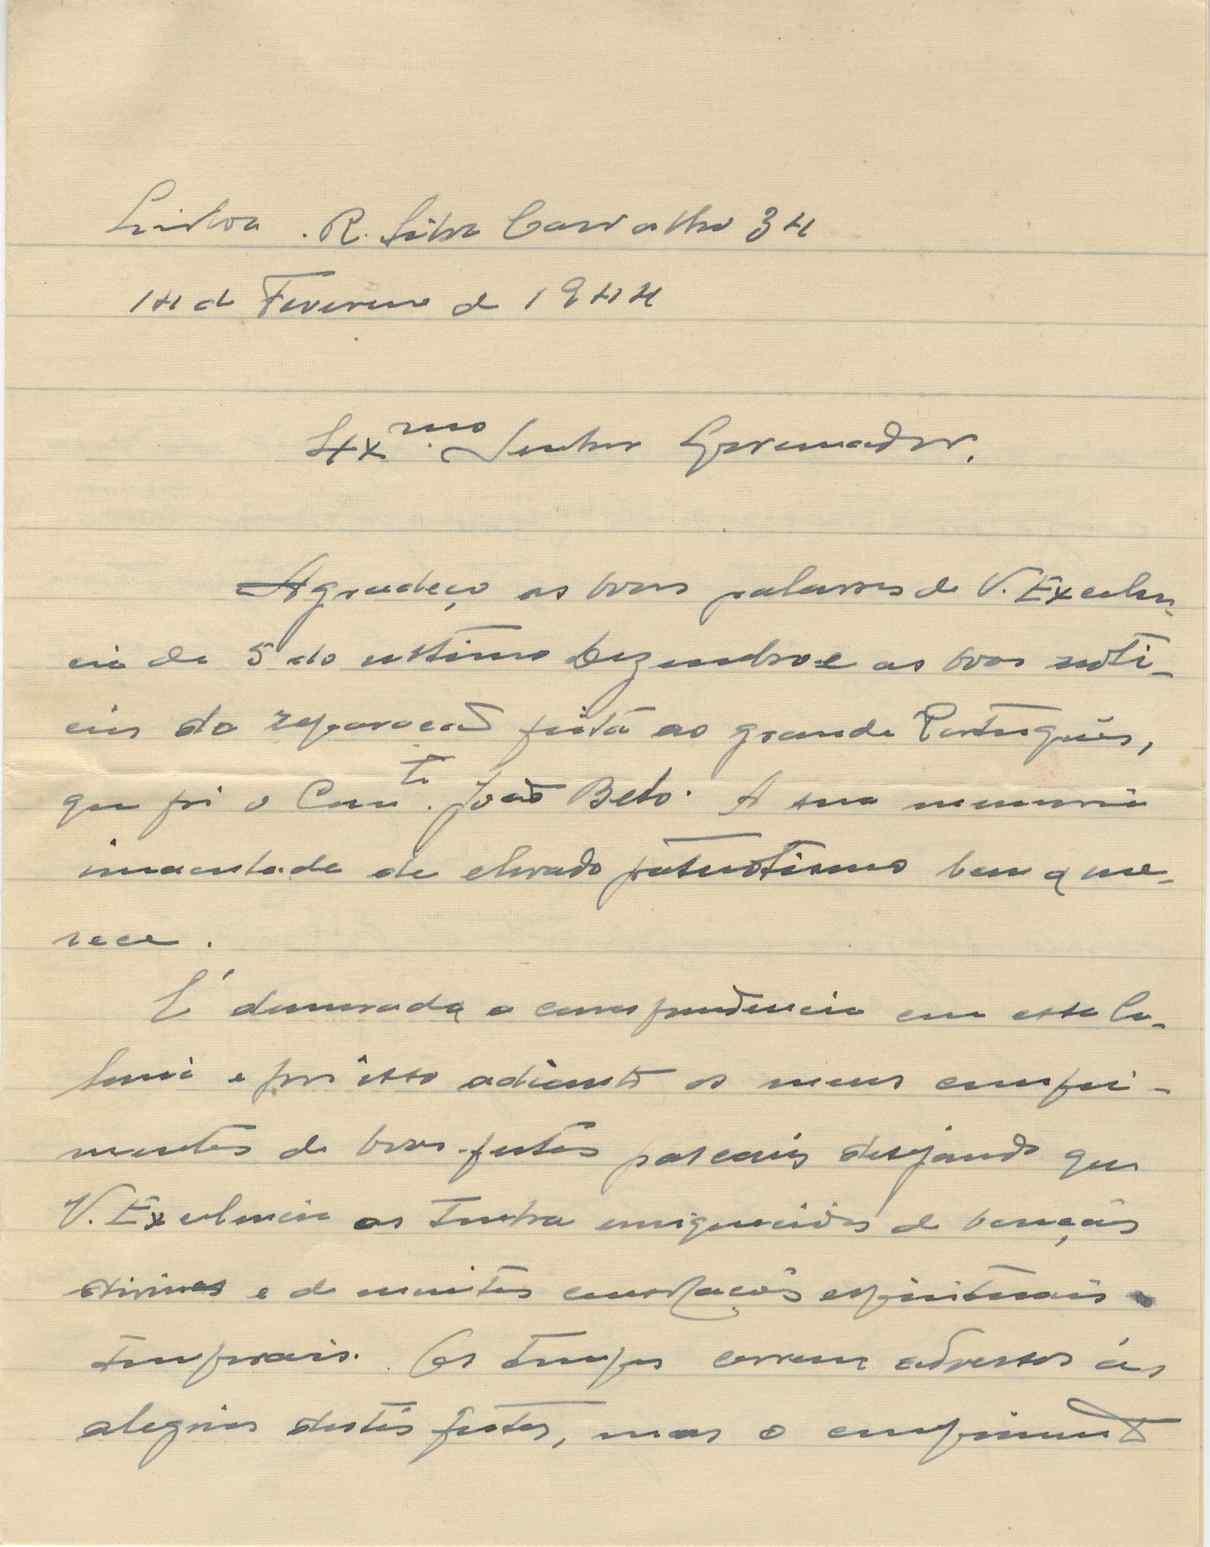 Lisboa . R. Silva Carvalho 34
14 de Fevereiro de 1944
Ex.mo Senhor Governador.
Agradeço as boas palavras de V. Excelen-
cia de 5 do ultimo Dezembro e as boas noti-
cias da reparação feita ao grande Português,
que foi o Com.te João Belo. A sua memoria
imaculada de elevado patriotismo bem a me-
rece.
É demorada a correspondencia em essa Co-
lonia e por isso adianto os meus cumpri-
mentos de boas festas pascais desejando que
V. Excelencia as tenha enriquecidas de bençãos
divinas e de muitas consolações espirituais e
temporais. Os tempos correm adversos ás
alegrias destas festas, mas o cumprimento